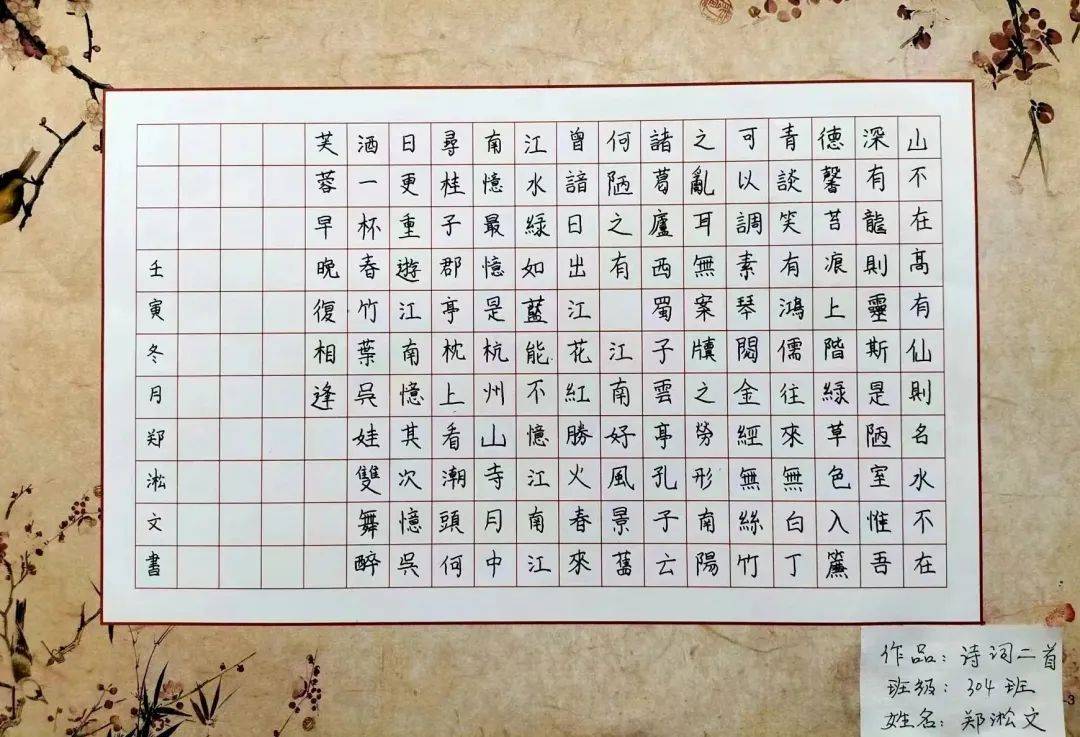 山不在髙有仙則名水不在
深有龍則靈斯是陋室惟吾
德馨苔痕上階綠草色入簾
青談笑有鴻儒往來無白丁
可以調素琴閱金經無絲竹
之亂耳無案牘之勞形南陽
諸葛廬西蜀子雲亭孔子云
何陋之有 江南好風景舊
曾諳日出江花紅勝火春來
江水綠如藍能不憶江南江
南憶最憶是杭州山寺月中
尋桂子郡亭枕上看潮頭何
日更重遊江南憶其次憶吳
酒一杯春竹葉吳娃雙舞醉
芙蓉早晚復相逢
壬寅冬月郑淞文書
作品：诗词二首
班级：304班
姓名：郑淞文